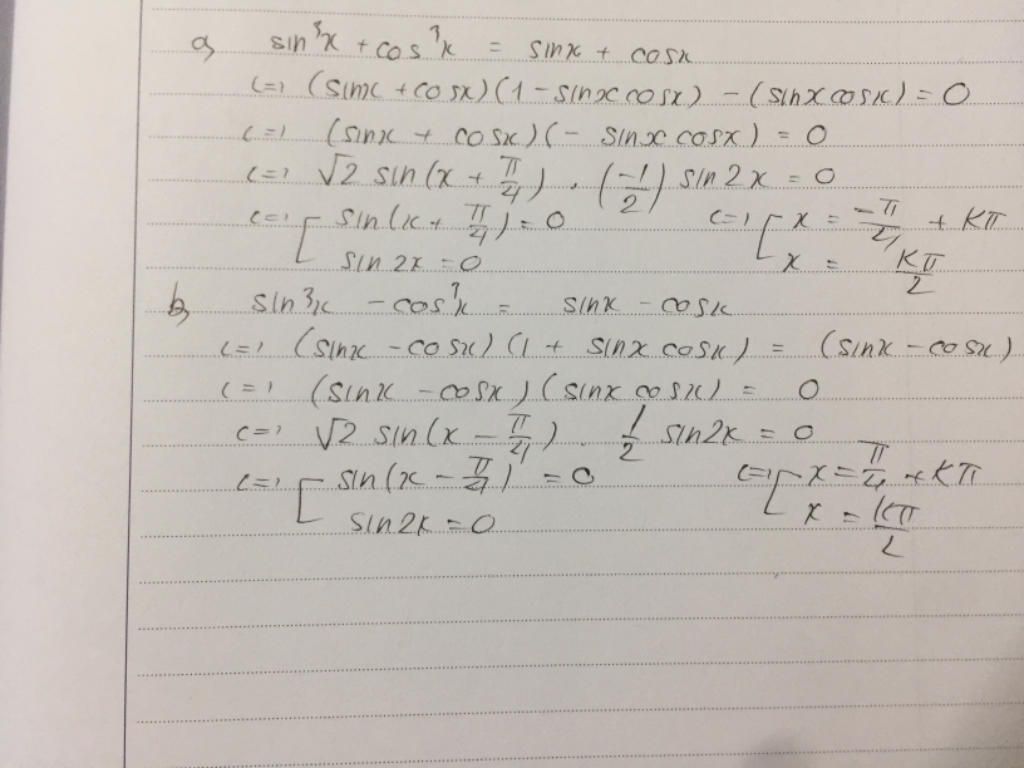 a, sin³x + cos³x = sinx + cosx
<=> (sinx + cosx)(1 - sinxcosx) - (sinxcosx) = 0
<=> (sinx + cosx)(- sinxcosx) = 0
<=> √2 sin(x + π/4) . (-1/2) sin2x = 0
<=> [ sin(x + π/4) = 0 <=> [ x = -π/4 + Kπ
sin2x = 0 x = Kπ/2
b, sin³x - cos³x = sinx - cosx
<=> (sinx - cosx)(1 + sinxcosx) = (sinx - cosx)
<=> (sinx - cosx)(sinxcosx) = 0
<=> √2 sin(x - π/4) . 1/2 sin2x = 0
<=> [ sin(x - π/4) = 0 <=> [ x = π/4 + Kπ
sin2x = 0 x = Kπ/2